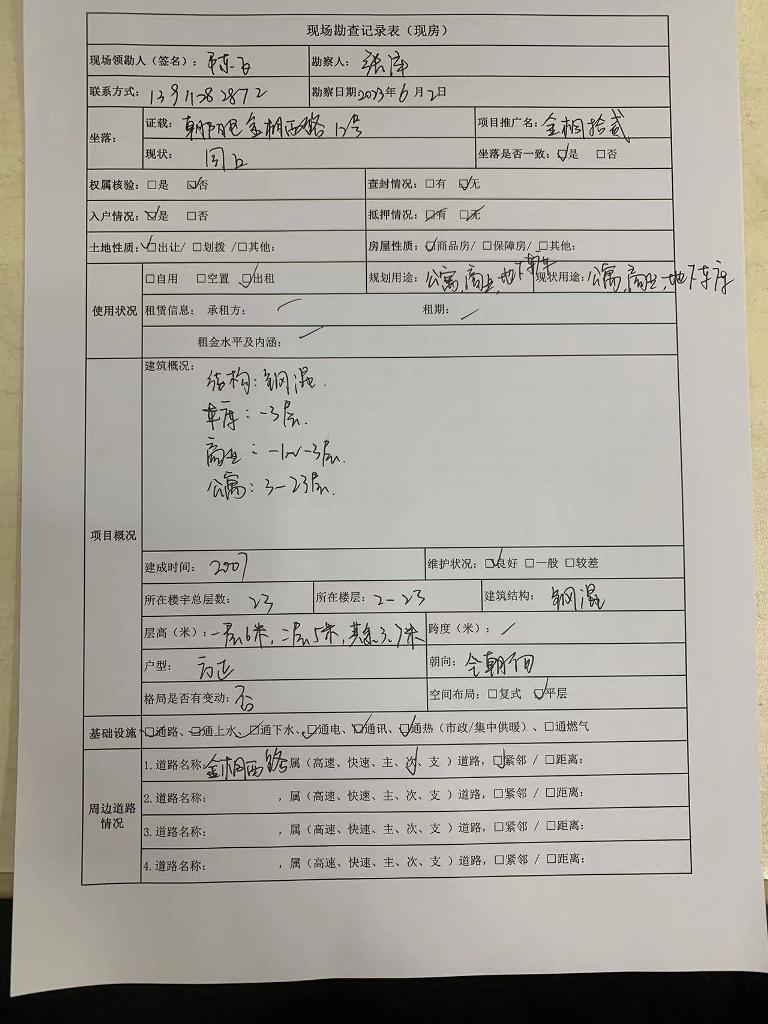 现场勘查记录表（现房）
现场领勘人（签名）： 勘察人：
联系方式： 勘察日期：2023年6月2日
坐落： 证载：朝阳区金桐西路12号 项目推广名：金桐拾贰
现状：同上 坐落是否一致：☑是 □否
权属核验：□是 ☑否 查封情况：□有 ☑无
入户情况：☑是 □否 抵押情况：□有 □无
土地性质：☑出让/ □划拨 /□其他： 房屋性质：☑商品房/ □保障房/ □其他：
使用状况 □自用 □空置 ☑出租 规划用途：公寓,商业,地下车库 现状用途：公寓,商业,地下车库
租赁信息： 承租方： / 租期： /
租金水平及内涵： /
项目概况 建筑概况：
结构：钢混.
车库：-3层.
商业：-1~-3层.
公寓：3-23层.
建成时间：2007 维护状况：☑良好 □一般 □较差
所在楼宇总层数：23 所在楼层：2-23 建筑结构：钢混
层高（米）：一层6米,二层5米,其余3.7米 跨度（米）：/
户型：方正 朝向：全朝向
格局是否有变动：否 空间布局：□复式 ☑平层
基础设施 ☑通路、☑通上水、☑通下水、☑通电、☑通讯、☑通热（市政/集中供暖）、□通燃气
周边道路情况 1.道路名称：金桐西路 属（高速、快速、主、次、支 ）道路，☑紧邻 / □距离：
2.道路名称： ，属（高速、快速、主、次、支 ）道路，□紧邻 / □距离：
3.道路名称： ，属（高速、快速、主、次、支 ）道路，□紧邻 / □距离：
4.道路名称： ，属（高速、快速、主、次、支 ）道路，□紧邻 / □距离：